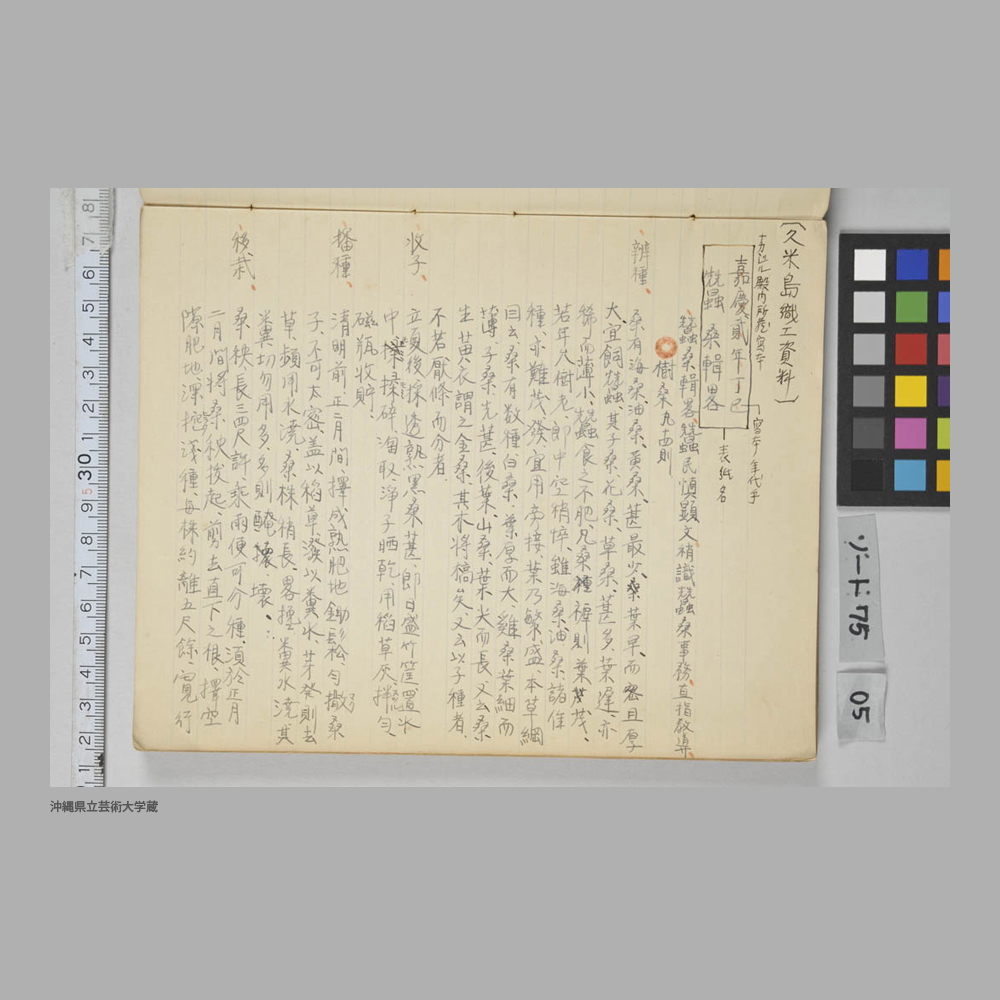 〔久米島織工資料〕
殿内所蔵写本
嘉慶貳年丁巳
蠶桑輯畧
写本ノ年代乎
表紙名
蠶桑輯畧 蠶民慎顕文 稍識蠶桑事務、直指教導、
樹桑 凡十四則
辨種、
桑有海桑、油桑、黄桑、葚最少、桑葉早、而密且厚
大、宜飼蠶蟲、其子桑、花桑、草桑、葚多、葉遅、亦
稀而薄小、蠶食之不肥、凡桑種稚則葉茂、
若年久樹老、即中空稍悴、雖海桑、油桑、諸佳
種、亦難茂發、宜用 接、葉乃繁盛、本草綱
目云、桑有数種、白桑、葉厚而大、雞桑葉細而
薄、子桑、先葚後葉、山桑、葉尖而長、又云桑
生黄衣、謂之金桑、其木将槁矣、又云以子種者、
不若厭條而分者、
收子、
立夏後、採透熟黒桑葚、即日盛竹筐、置水
中、揉碎、淘取浄子晒乾、用稻草灰拌匀、
磁瓶收貯、
播種、
清明前、正二月間、擇成熟肥地、鋤鬆、匀撒桑
子、不可太密、盖以稻草、潑以糞水、芽發則去
草、頻用水澆、桑株稍長、畧挹糞水澆其
糞切勿用多、多則醃壊、
移栽、
桑秧、長三四尺許、乘雨便可分種、須於正月
二月間、将桑秧拔起、剪去直下之根、擇空
隙肥地、深掘淺種、毎株約離五尺餘、寛行
ゾード:75
05
沖縄県立芸術大学蔵